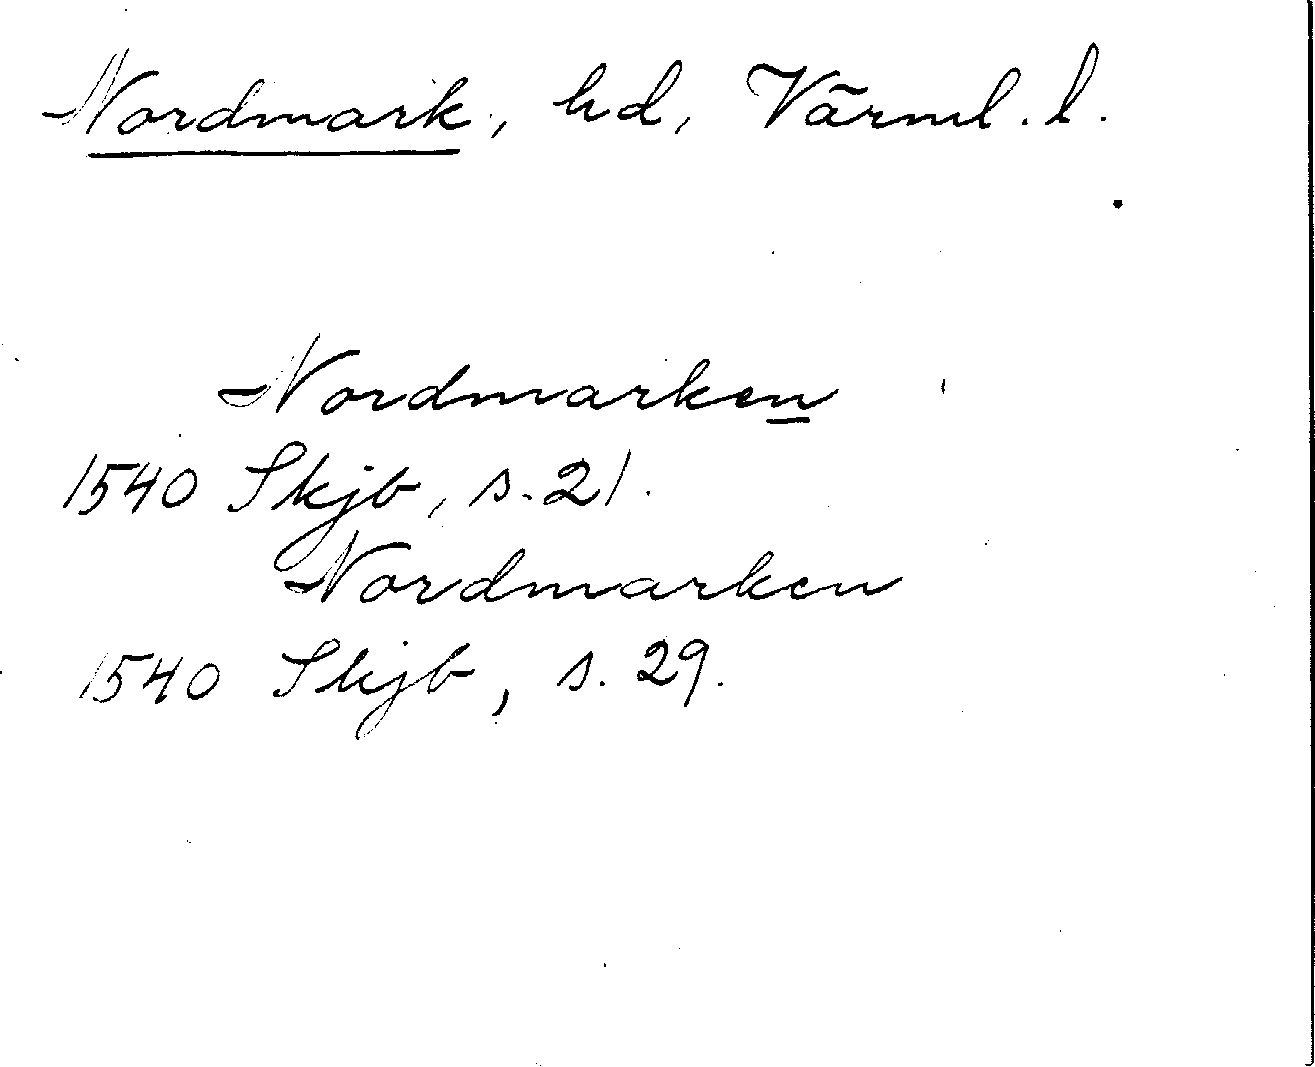 Nordmark, hd, Värml. l.
Nordmarken
1540 Skjb, s. 21.
Nordmarken
1540 Skjb, s. 29.